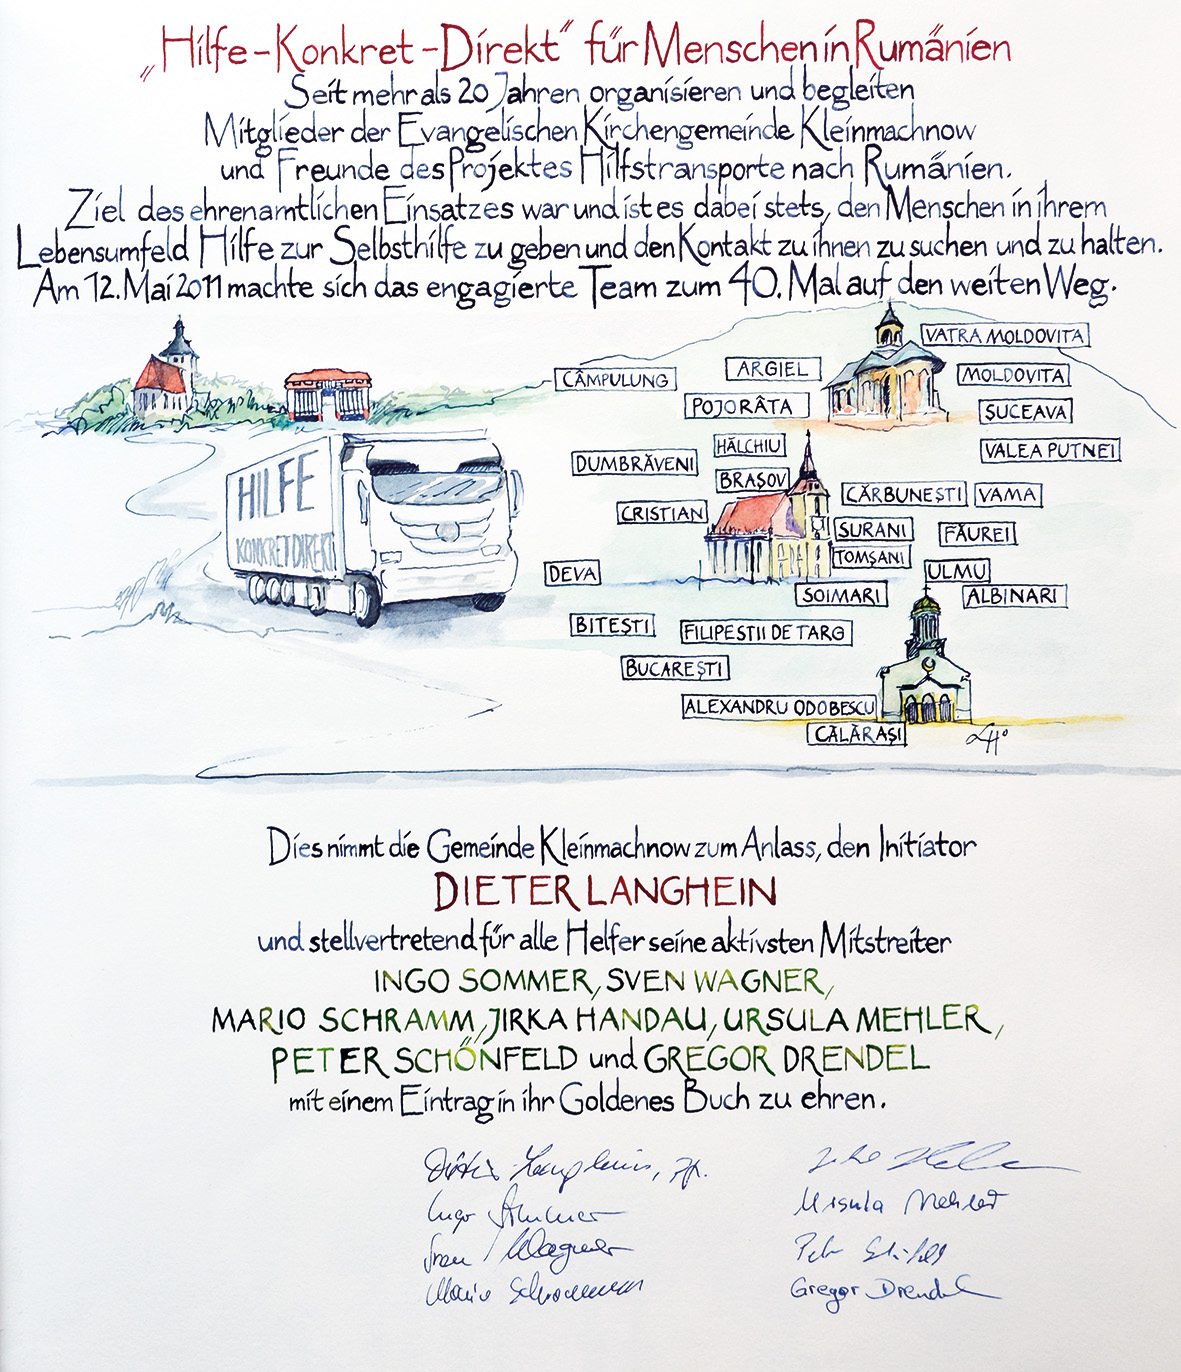 „Hilfe-Konkret-Direkt" für Menschen in Rumänien
Seit mehr als 20 Jahren organisieren und begleiten
Mitglieder der Evangelischen Kirchengemeinde Kleinmachnow
und Freunde des Projektes Hilfstransporte nach Rumänien.
Ziel des ehrenamtlichen Einsatzes war und ist es dabei stets, den Menschen in ihrem
Lebensumfeld Hilfe zur Selbsthilfe zu geben und den Kontakt zu ihnen zu suchen und zu halten.
Am 12. Mai 2011 machte sich das engagierte Team zum 40. Mal auf den weiten Weg.
VATRA MOLDOVITA
ARGIEL
CÂMPULUNG
MOLDOVITA
POJORÂTA
SUCEAVA
HĂLCHIU
VALEA PUTNEI
DUMBRĂVENI
BRAȘOV
HILFE
KONKRET DIREKT
CĂRBUNEȘTI
VAMA
CRISTIAN
SURANI
FĂUREI
TOMȘANI
DEVA
ULMU
SOIMARI
ALBINARI
BITEȘTI
FILIPESTII DE TARG
BUCAREȘTI
ALEXANDRU ODOBESCU
CĂLĂRAȘI
Dies nimmt die Gemeinde Kleinmachnow zum Anlass, den Initiator
DIETER LANGHEIN
und stellvertretend für alle Helfer seine aktivsten Mitstreiter
INGO SOMMER, SVEN WAGNER,
MARIO SCHRAMM, JIRKA HANDAU, URSULA MEHLER,
PETER SCHÖNFELD und GREGOR DRENDEL
mit einem Eintrag in ihr Goldenes Buch zu ehren.
Dieter Langhein, Pf.
Ingo Sommer
Sven Wagner
Mario Schramm
Ursula Mehler
Peter Schönfeld
Gregor Drendel